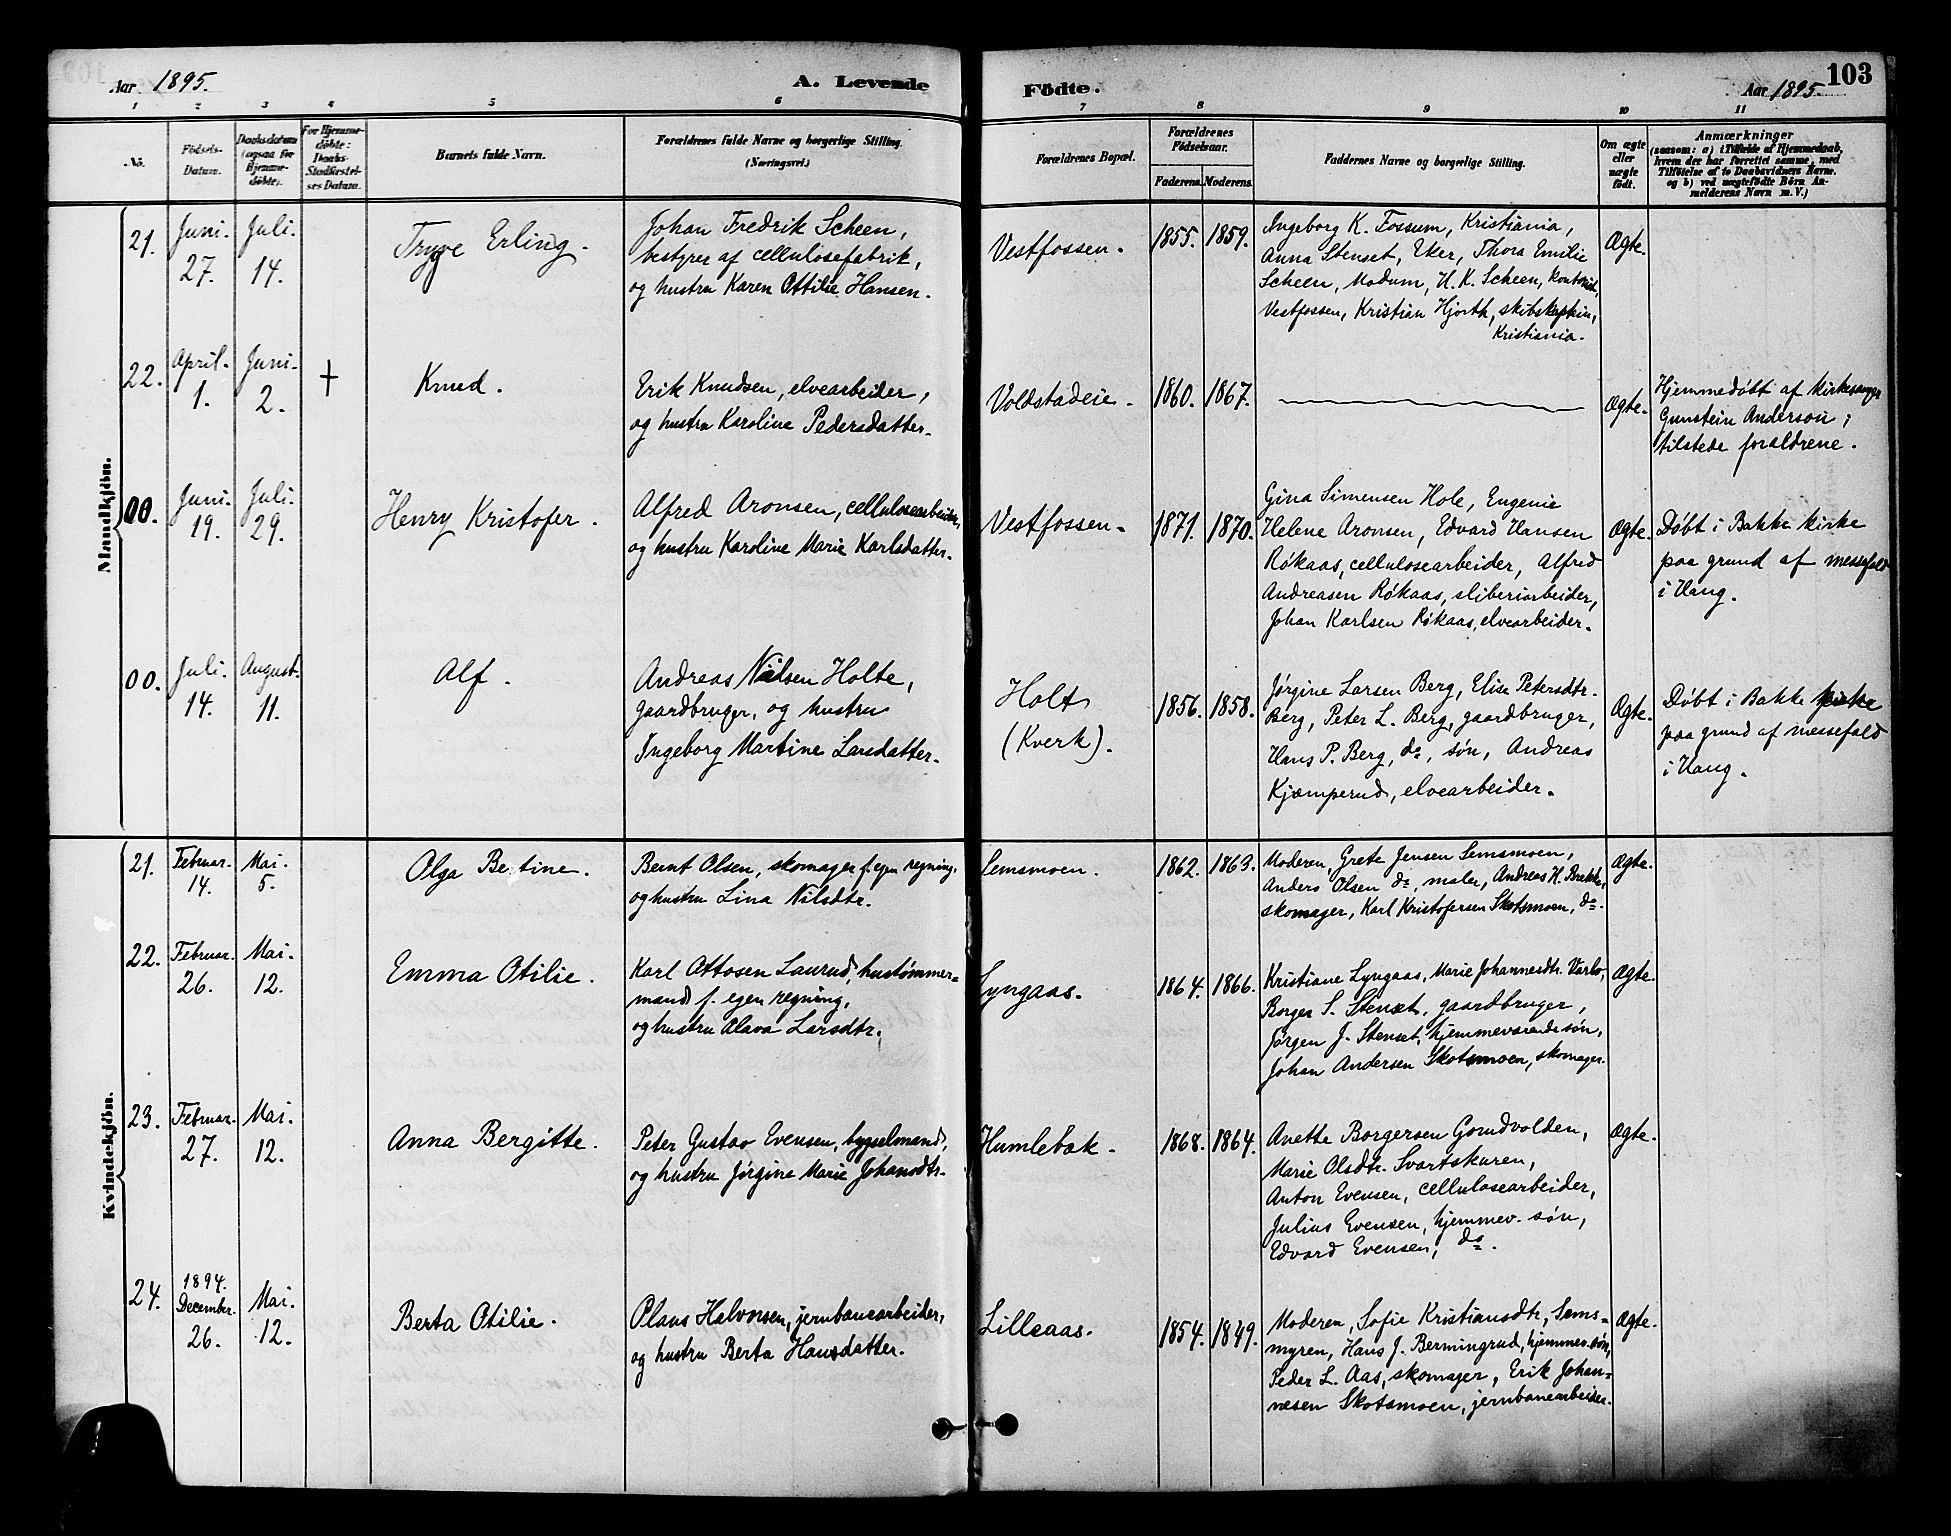 Aar 1895.
A. Levende
Födte.
Aar 1895.
103
1 2 3 4 5 6 7 8 9 10 11
No.
Födsels-
Datum.
Daabsdatum
(ogsaa for
Hjemme-
döbte).
For Hjemme-
döbte:
Daabs-
Stadfæstel-
ses Datum.
Barnets fulde Navn.
Forældrenes fulde Navne og borgerlige Stilling.
(Næringsvei.)
Forældrenes Bopæl.
Forældrenes
Födselsaar.
Faderens. Moderens.
Faddernes Navne og borgerlige Stilling.
Om ægte
eller
uægte
födt.
Anmærkninger
(saasom: a) i Tilfælde af Hjemmedaab,
hvem der har forrettet samme, med
Tilföielse af to Daabsvidners Navne.
og b) ved uægtefödte Börn An-
melderens Navn m. V.)
Mandkjön.
21.
Juni.
27.
Juli.
14.
Trygve Erling.
Johan Fredrik Scheen,
bestyrer af cellulosefabrik,
og hustru Karen Ottilie Hansen.
Vestfossen.
1855. 1859.
Ingeborg K. Fossum, Kristiania,
Anna Stenset, Eker, Thora Emilie
Scheen, Modum, H. K. Scheen, kontorist,
Vestfossen, Kristian Hjorth, skibskaptein,
Kristiania.
Ægte.
22.
April.
1.
Juni.
2.
+
Knud.
Erik Knudsen, elvearbeider,
og hustru Karoline Pedersdatter.
Voldstadeie.
1860. 1867.
Ægte.
Hjemmedøbt af kirkesanger
Gunstein Anderson;
tilstede forældrene.
00.
Juni.
19.
Juli.
29.
Henry Kristofer.
Alfred Aronsen, cellulosearbeider,
og hustru Karoline Marie Karlsdatter.
Vestfossen.
1871. 1870.
Gina Simensen Hole, Eugenie
Helene Aronsen, Edvard Hansen
Røkaas, cellulosearbeider, Alfred
Andreasen Røkaas, sliberiarbeider,
Johan Karlsen Røkaas, elvearbeider.
Ægte.
Døbt i Bakke kirke
paa grund af messefald
i Haug.
00.
Juli.
14.
August.
11.
Alf.
Andreas Nilsen Holte,
gaardbruger, og hustru
Ingeborg Martine Larsdatter.
Holt
(Kverk).
1856. 1858.
Jørgine Larsen Berg, Elise Petersdtr.
Berg, Peter L. Berg, gaardbruger,
Hans P. Berg, do, søn, Andreas
Kjæmperud, elvearbeider.
Ægte.
Døbt i Bakke kirke
paa grund af messefald
i Haug.
Kvindekjön.
21.
Februar.
14.
Mai.
5.
Olga Bertine.
Bernt Olsen, skomager f. egen regning,
og hustru Lina Nilsdtr.
Semsmoen.
1862. 1863.
Moderen, Grete Jensen Semsmoen,
Anders Olsen do, maler, Andreas H. Brekke,
skomager, Karl Kristofersen Skotsmoen, do.
Ægte.
22.
Februar.
26.
Mai.
12.
Emma Otilie.
Karl Ottosen Laurud, hustømmer-
mand f. egen regning,
og hustru Olava Larsdtr.
Lyngaas.
1864. 1866.
Kristiane Lyngaas, Marie Johannesdtr. Varlo,
Borger S. Stenset, gaardbruger,
Jørgen J. Stenset, hjemmeværende søn,
Johan Andersen Skotsmoen, skomager.
Ægte.
23.
Februar.
27.
Mai.
12.
Anna Bergitte.
Peter Gustav Evensen, bygselmand,
og hustru Jørgine Marie Johansdtr.
Humlebæk.
1868. 1864.
Anette Borgersen Gomdvolden,
Marie Olsdtr. Svartskuren,
Anton Evensen, cellulosearbeider,
Julius Evensen, hjemmev. søn,
Edvard Evensen, do.
Ægte.
24.
1894.
December.
26.
Mai.
12.
Berta Otilie.
Olaus Halvorsen, jernbanearbeider,
og hustru Berta Hansdatter.
Lilleaas.
1854. 1849.
Moderen, Sofie Kristiansdtr. Sems-
myren, Hans J. Bermingrud, hjemmev. søn,
Peder L. Aas, skomager, Erik Johan-
nesen Skotsmoen, jernbanearbeider.
Ægte.